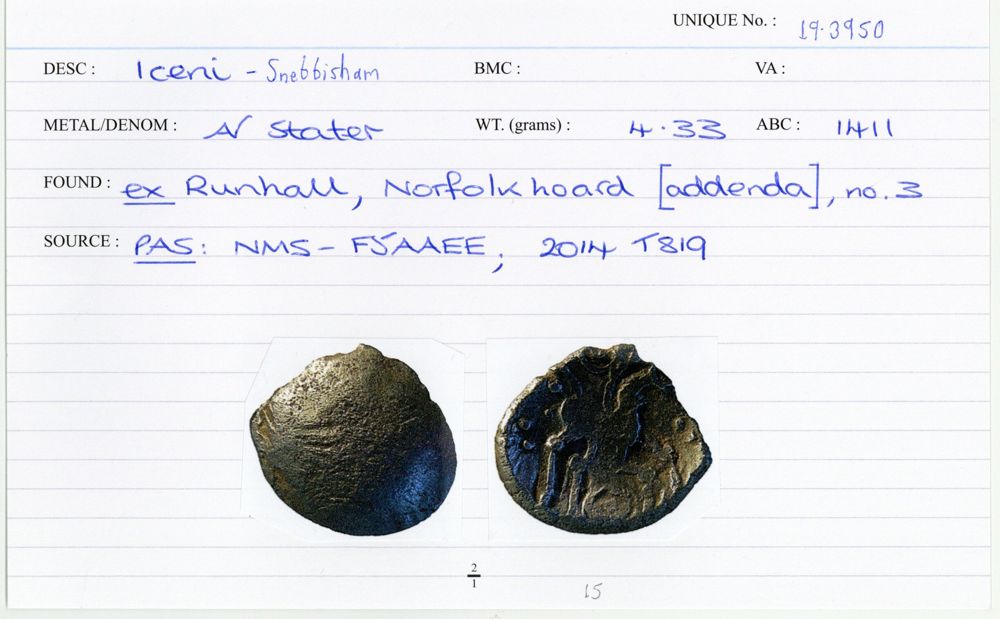 UNIQUE No. : 19.3950
DESC : Iceni - Snebbisham BMC : VA :
METAL/DENOM : AV Stater WT. (grams) : 4.33 ABC : 1411
FOUND : ex Runhall, Norfolk hoard [addenda], no. 3
SOURCE : PAS: NMS - F5AAEE; 2014 T819
2
1
15